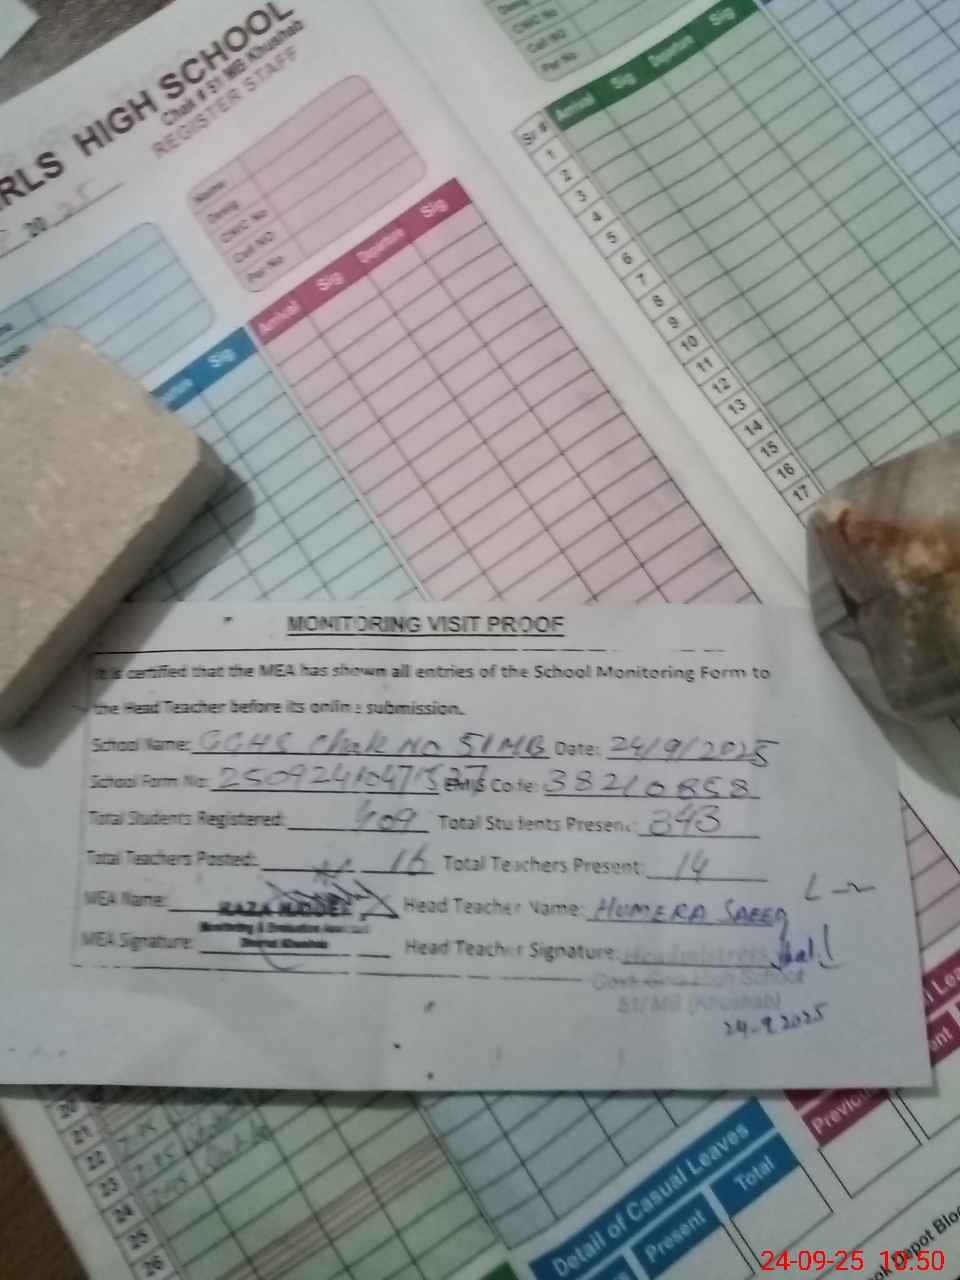 RLS HIGH SCHOOL
Chak # 51 MB Khushab
REGISTER STAFF
20 25
Name
Desig
CNIC No
Cell NO
Per No
Arrival Sig Departure Sig
Sig
Desig
CNIC No
Cell No
Per No
Sr # Arrival Sig Departure Sig
1
2
3
4
5
6
7
8
9
10
11
12
13
14
15
16
17
MONITORING VISIT PROOF
It is certified that the MEA has shown all entries of the School Monitoring Form to
the Head Teacher before its online submission.
School Name: GGHS Chak No 51MB Date: 24/9/2025
School Form No: EMIS Code: 38210858
Total Students Registered: 409 Total Students Present: 343
Total Teachers Posted: 16 Total Teachers Present: 14
MEA Name: Head Teacher Name: HUMERA SAEED
Monitoring & Evaluation Assistant
District Khushab
MEA Signature: Head Teacher Signature: Headmistress
Govt. Girls High School
51/MB (Khushab)
24-9-2025
20
21
22
23
24
25
26
Detail of Casual Leaves
Present Total
Previou
24-09-25 10:50